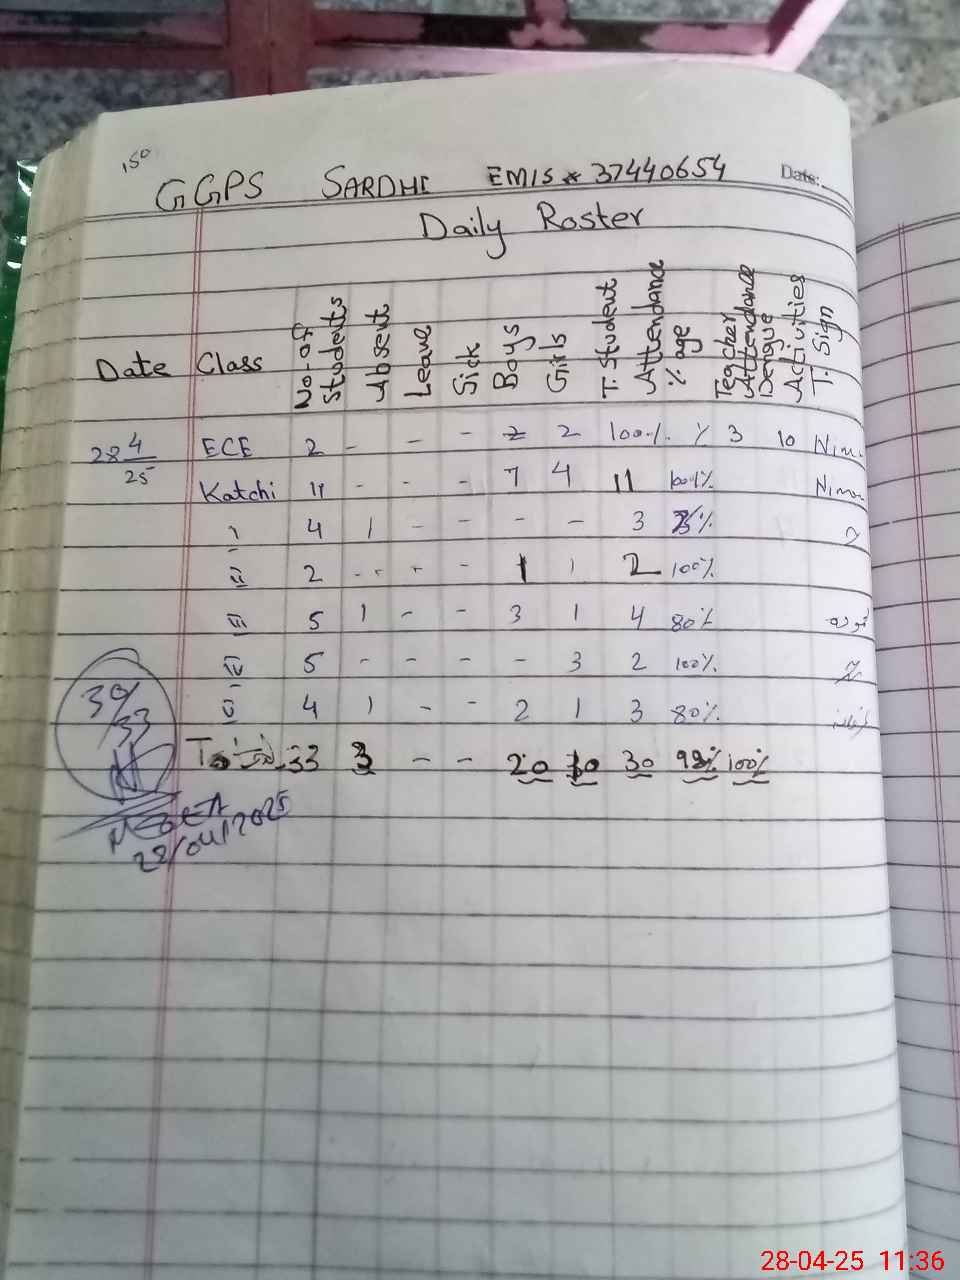 150
GGPS SARDHI EMIS * 37440654 Date:
Daily Roster
Date Class No-of Students Absent Leave Sick Boys Girls T. Student Attendance % age Teacher Attendance Dengue Activities T. Sign
28 4/25 ECE 2 - - - 2 2 100% % 3 10
Katchi 11 - - - 7 4 11 100%
I 4 1 - - - - 3 %
II 2 - - - 1 1 2 100%
III 5 1 - - 3 1 4 80%
IV 5 - - - - 3 2 100%
V 4 1 - - 2 1 3 80%
33 3 - - 20 10 30 % 100%
30/33
28/04/2025
28-04-25 11:36